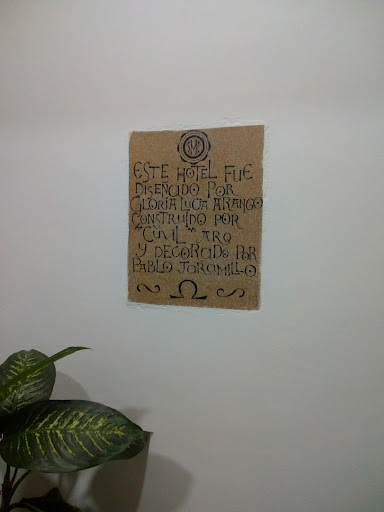 ESTE HOTEL FUE
DISEÑADO POR
GLORIA LUCIA ARANGO
CONSTRUIDO POR
"CIVIL ARQ"
Y DECORADO POR
PABLO JARAMILLO